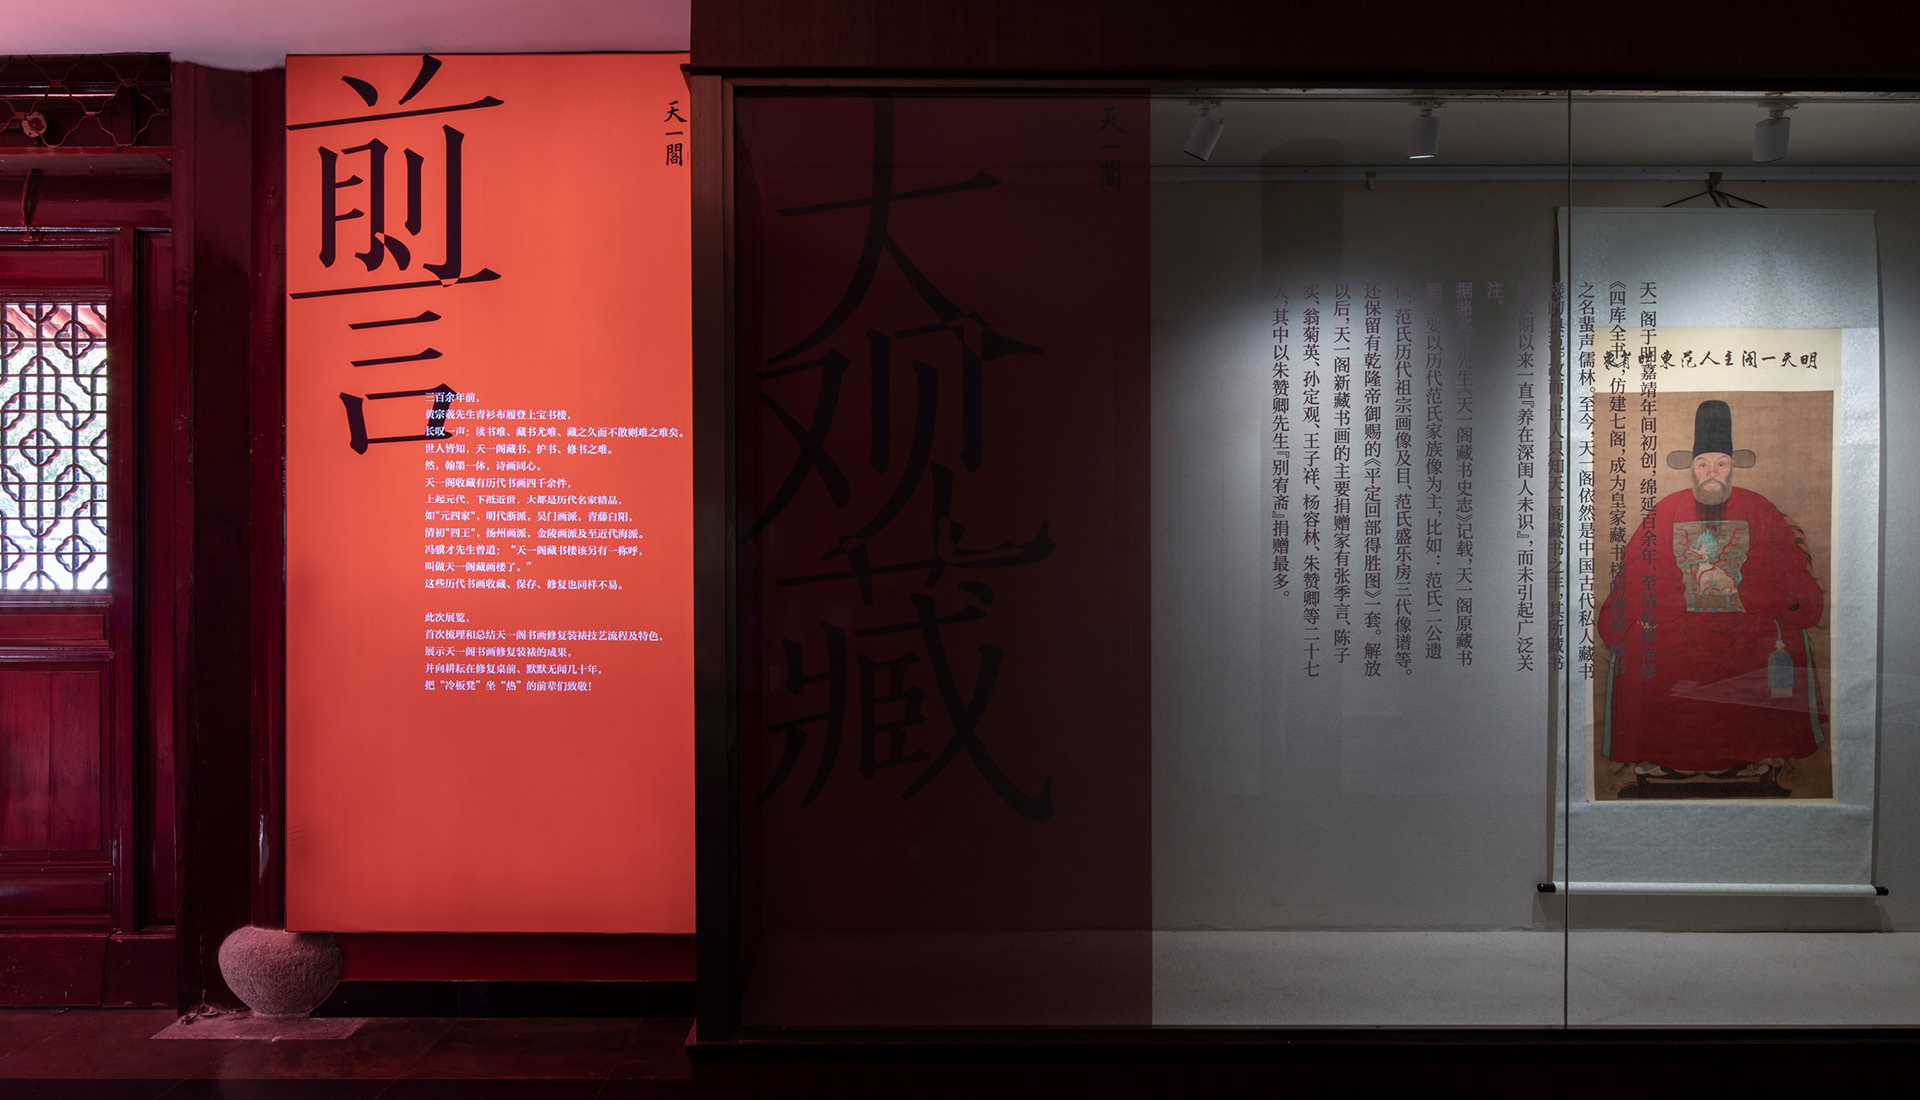 前言
天一閣
三百余年前，
黄宗羲先生青衫布履登上宝书楼，
长叹一声：读书难、藏书尤难、藏之久而不散则难之难矣。
世人皆知，天一阁藏书、护书、修书之难。
然，翰墨一体，诗画同心。
天一阁收藏有历代书画四千余件，
上起元代，下抵近世，大都是历代名家精品，
如"元四家"，明代浙派，吴门画派，青藤白阳，
清初"四王"，扬州画派，金陵画派及至近代海派。
冯骥才先生曾道：“天一阁藏书楼该另有一称呼，
叫做天一阁藏画楼了。”
这些历代书画收藏、保存、修复也同样不易。
此次展览，
首次梳理和总结天一阁书画修复装裱技艺流程及特色，
展示天一阁书画修复装裱的成果，
并向耕耘在修复桌前、默默无闻几十年，
把“冷板凳”坐“热”的前辈们致敬！
大观藏
天一閣
明天一阁主人范東明
天一阁于明嘉靖年间初创，绵延百余年，至
《四库全书》，仿建七阁，成为皇家藏书楼的
之名蜚声儒林。至今，天一阁依然是中国古代私人藏书
故而，世人只知天一阁藏书之丰，其所藏书
期以来一直『养在深闺人未识』，而未引起广泛关
注。
先生《天一阁藏书史志》记载，天一阁原藏书
画主要以历代范氏家族像为主，比如：范氏二公遗
像、范氏历代祖宗画像及目、范氏盛乐房三代像谱等。
还保留有乾隆帝御赐的《平定回部得胜图》一套。解放
以后，天一阁新藏书画的主要捐赠家有张季言、陈子
实、翁菊英、孙定观、王子祥、杨容林、朱赞卿等二十七
人，其中以朱赞卿先生『别宥斋』捐赠最多。